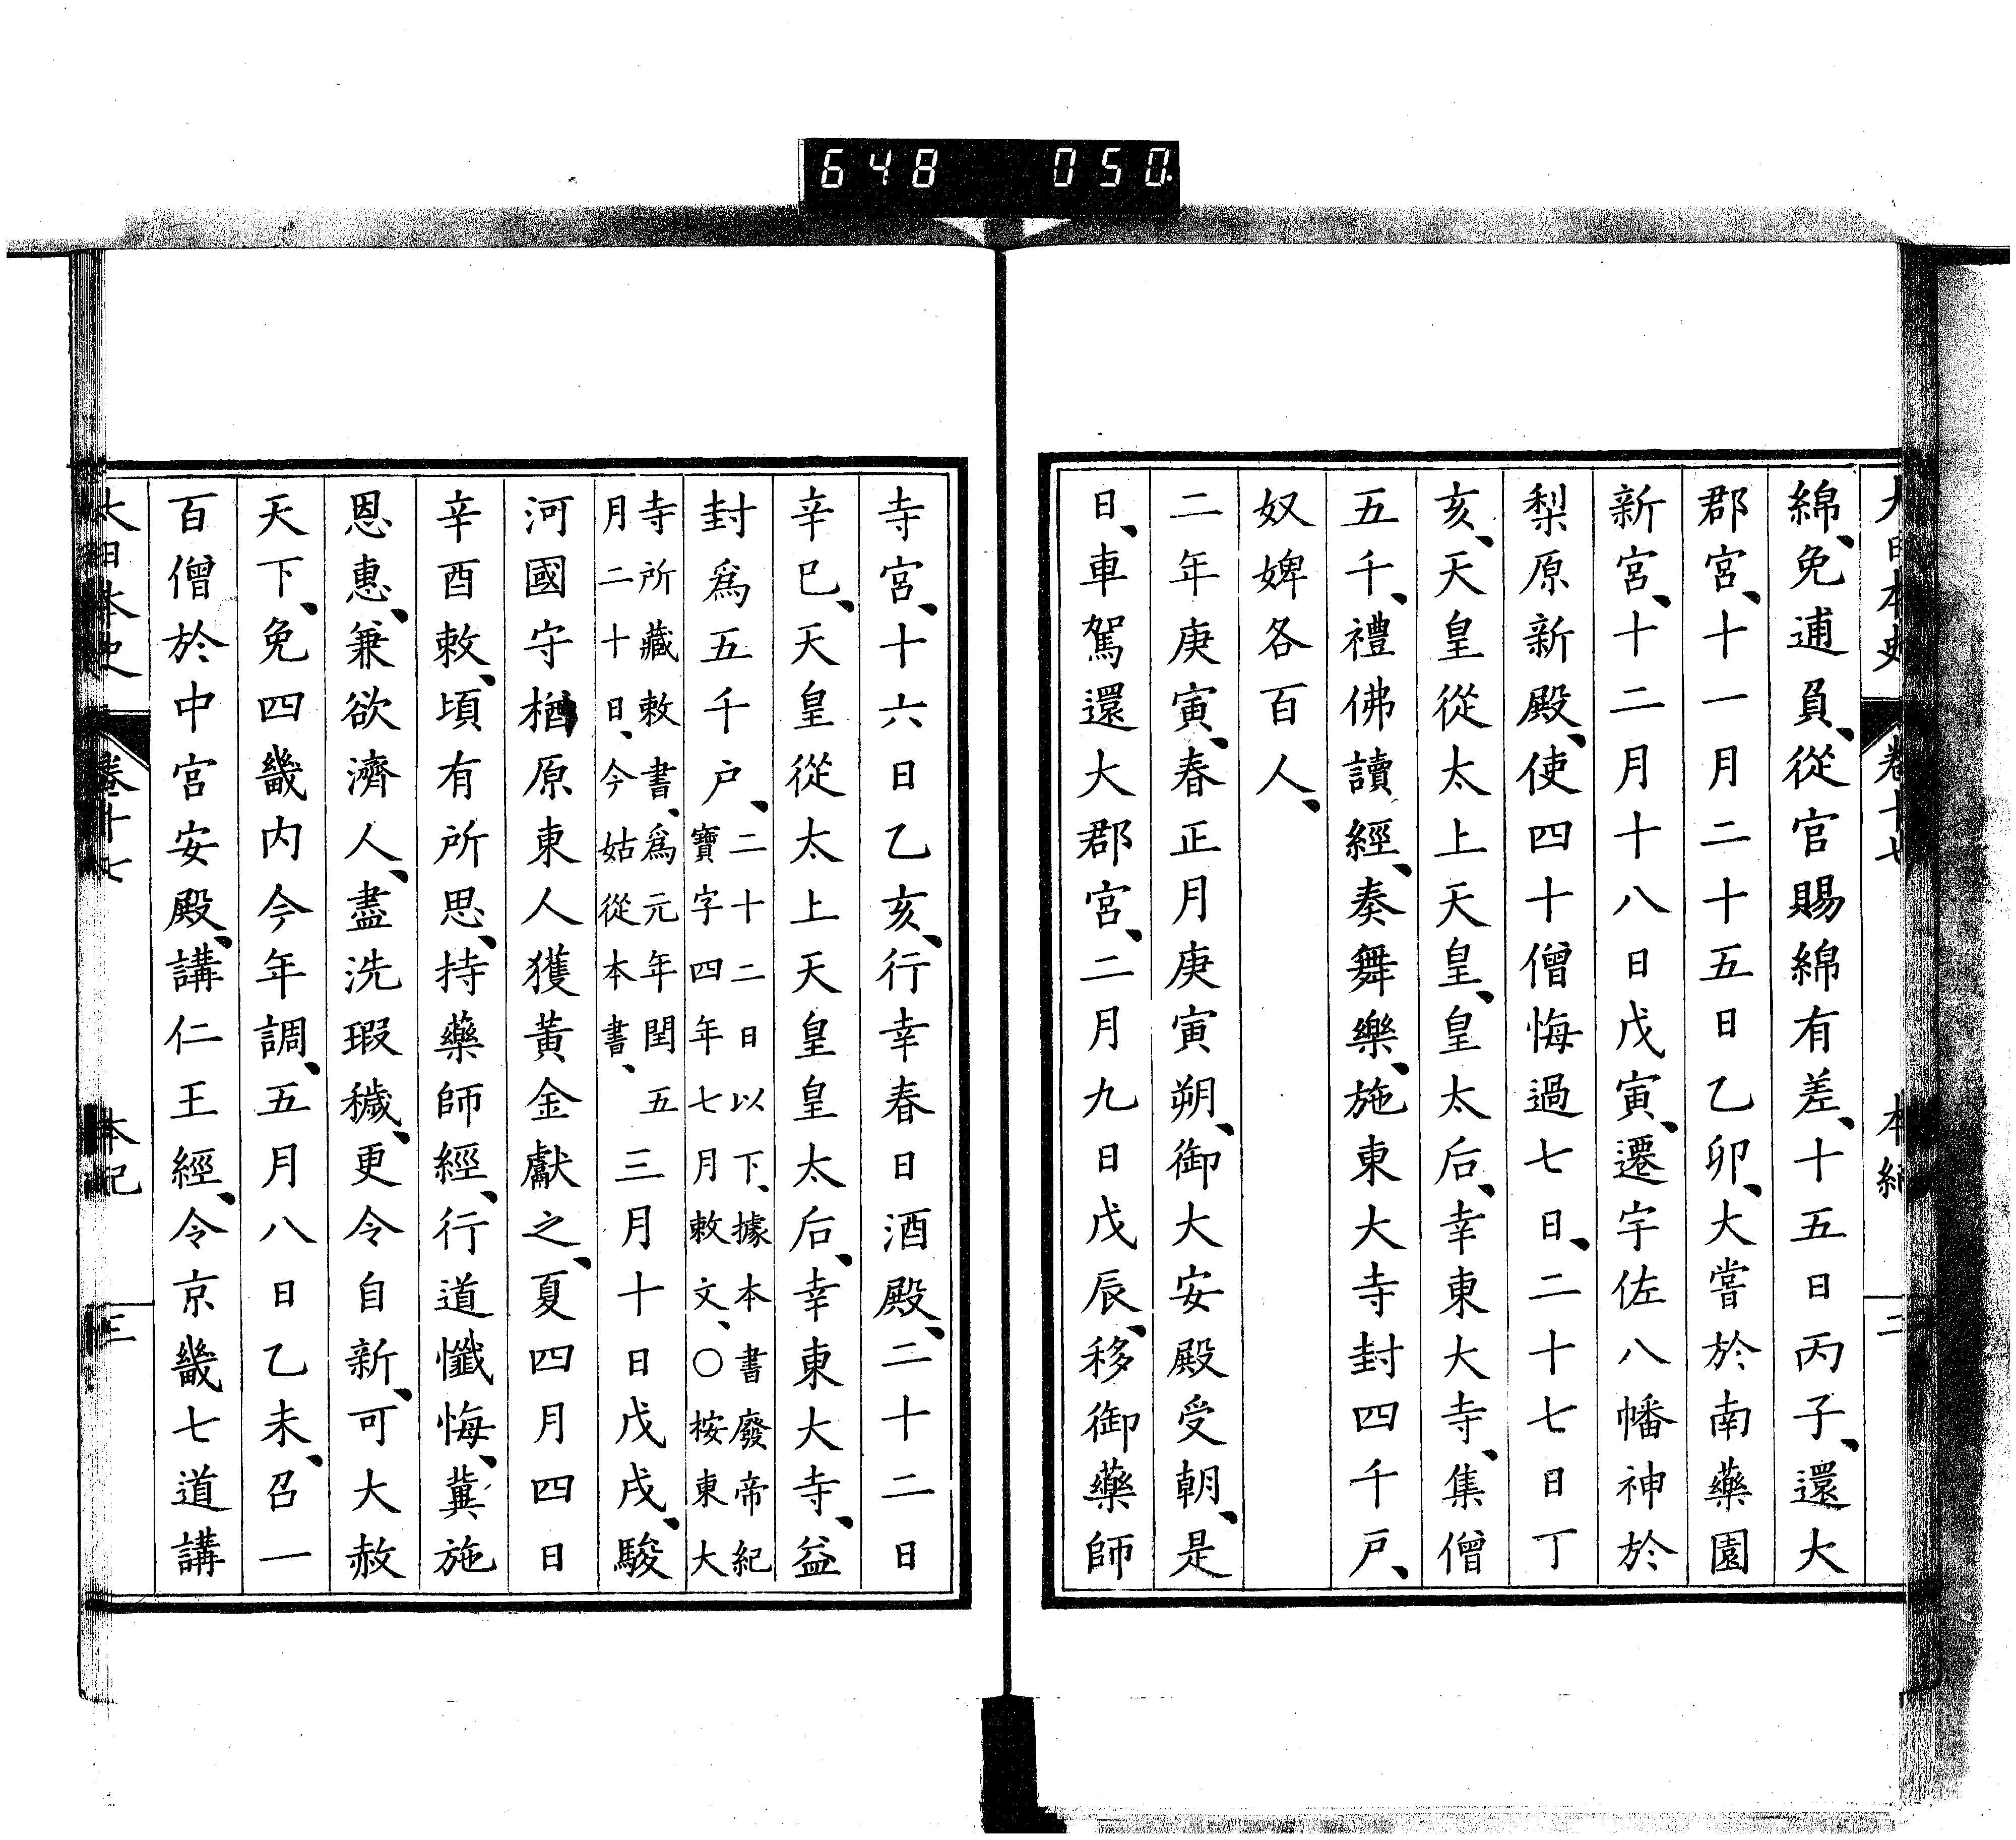 648 050
大日本史 卷十七 本紀 二
綿、免逋負、從官賜綿有差、十五日丙子、還大
郡宮、十一月二十五日乙卯、大嘗於南藥園
新宮、十二月十八日戊寅、遷宇佐八幡神於
梨原新殿、使四十僧悔過七日、二十七日丁
亥、天皇從太上天皇、皇太后、幸東大寺、集僧
五千、禮佛讀經、奏舞樂、施東大寺封四千戶、
奴婢各百人、
二年庚寅、春正月庚寅朔、御大安殿受朝、是
日、車駕還大郡宮、二月九日戊辰、移御藥師
寺宮、十六日乙亥、行幸春日酒殿、二十二日
辛巳、天皇從太上天皇皇太后、幸東大寺、益
封爲五千戶、二十二日以下、據本書廢帝紀
寶字四年七月敕文、○按東大
寺所藏敕書、爲元年閏五
月二十日、今姑從本書、三月十日戊戌、駿
河國守楢原東人獲黃金獻之、夏四月四日
辛酉敕、頃有所思、持藥師經、行道懺悔、冀施
恩惠、兼欲濟人、盡洗瑕穢、更令自新、可大赦
天下、免四畿內今年調、五月八日乙未、召一
百僧於中宮安殿、講仁王經、令京畿七道講
大日本史 卷十七 本紀 三